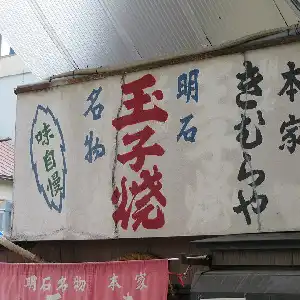 本家
きむらや
明石
玉子焼
名物
味自慢
明石名物 本家